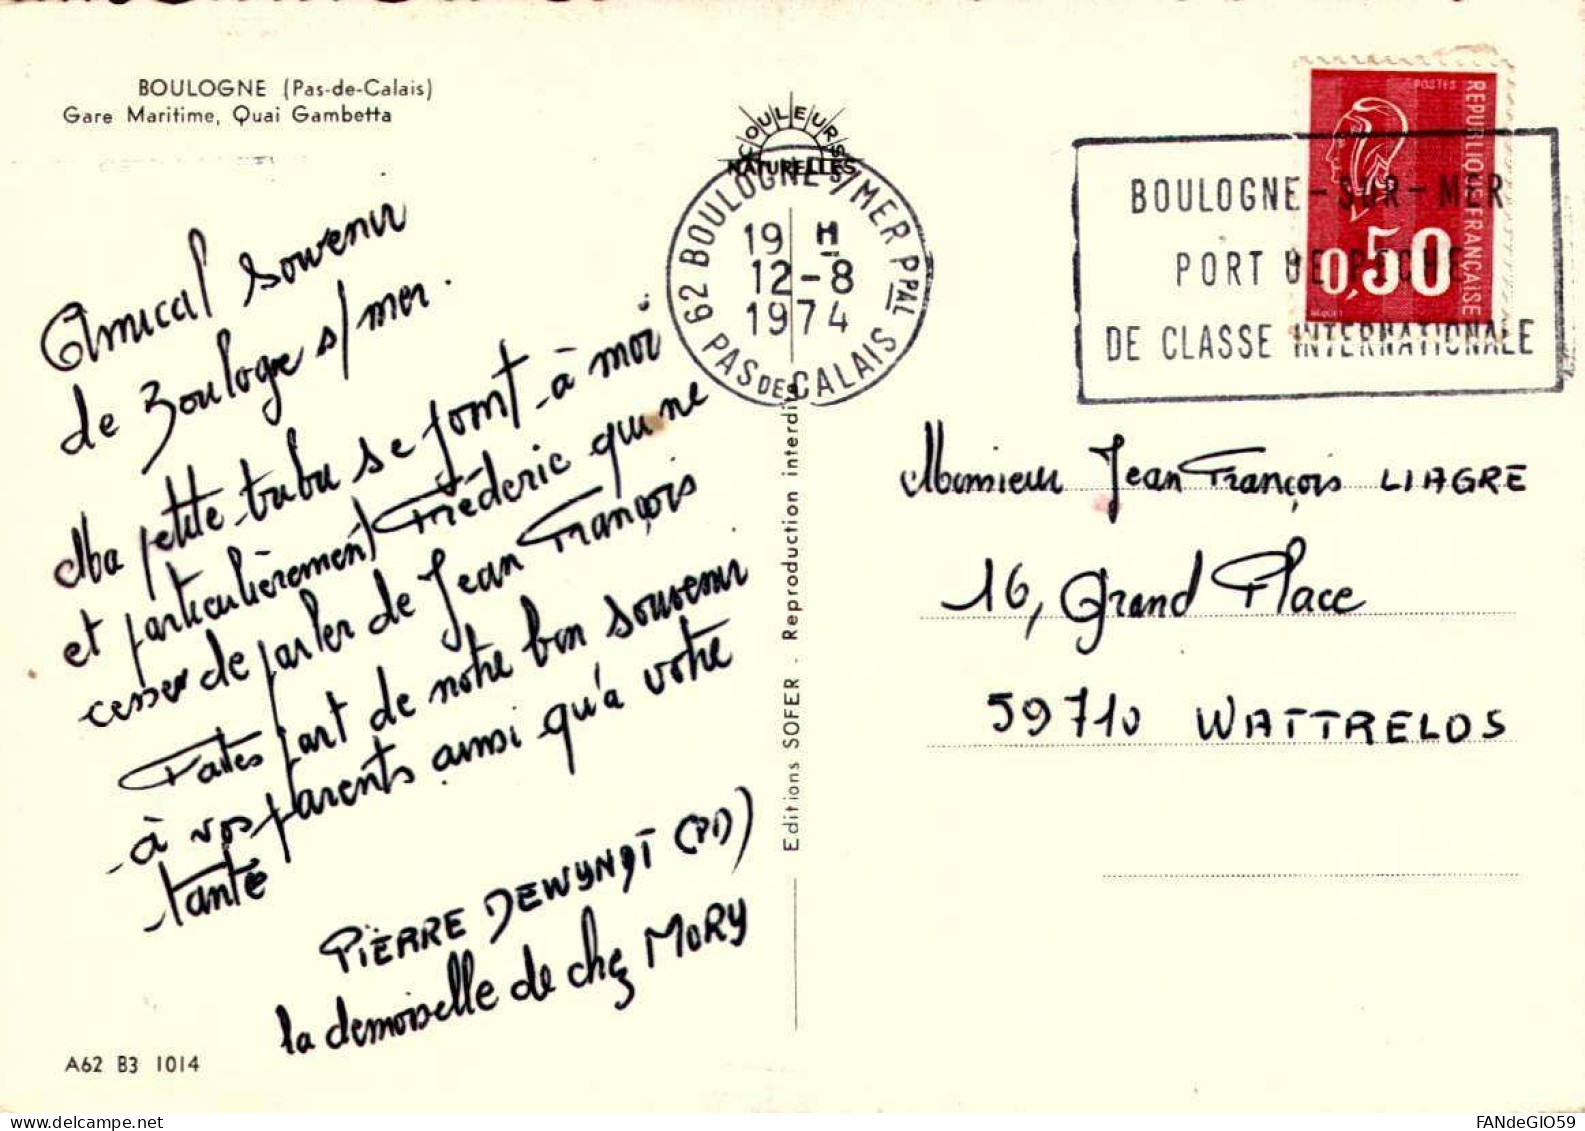 BOULOGNE (Pas-de-Calais)
Gare Maritime, Quai Gambetta
COULEURS
NATURELLES
62 BOULOGNE S/MER PPAL
19 H
12-8
1974
PAS DE CALAIS
BOULOGNE-SUR-MER
PORT DE PECHE
DE CLASSE INTERNATIONALE
POSTES
REPUBLIQUE FRANÇAISE
0,50
Amical souvenir
de Boulogne s/mer.
Ma petite tribu se joint à moi
et particulièrement Fréderic qui ne
cesse de parler de Jean François
Faites part de notre bon souvenir
à vos parents ainsi qu'à votre
tante
PIERRE DEWYNDT (PD)
la demoiselle de chez MORY
Editions SOFER . Reproduction interdite
Monsieur Jean François LIAGRE
16, Grand Place
59710 WATTRELOS
A62 B3 1014
FANdeGIO59